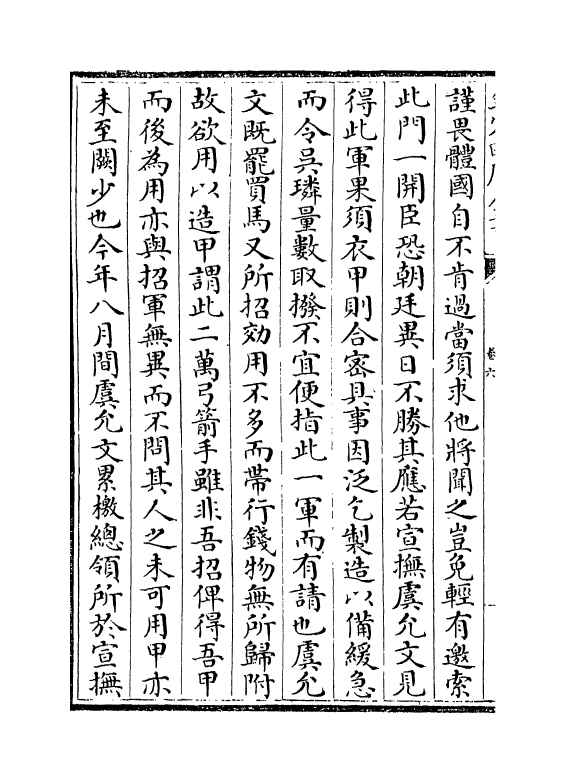 謹畏體國自不肯過當須求他將聞之豈免輕有邀索
此門一開臣恐朝廷異日不勝其應若宣撫虞允文見
得此軍果須衣甲則合密具事因泛乞製造以備緩急
而令吳璘量數取撥不宜便指此一軍而有請也虞允
文既罷買馬又所招効用不多而帶行錢物無所歸附
故欲用以造甲謂此二萬弓箭手雖非吾招俾得吾甲
而後為用亦與招軍無異而不問其人之未可用甲亦
未至闕少也今年八月間虞允文累檄總領所於宣撫
卷六